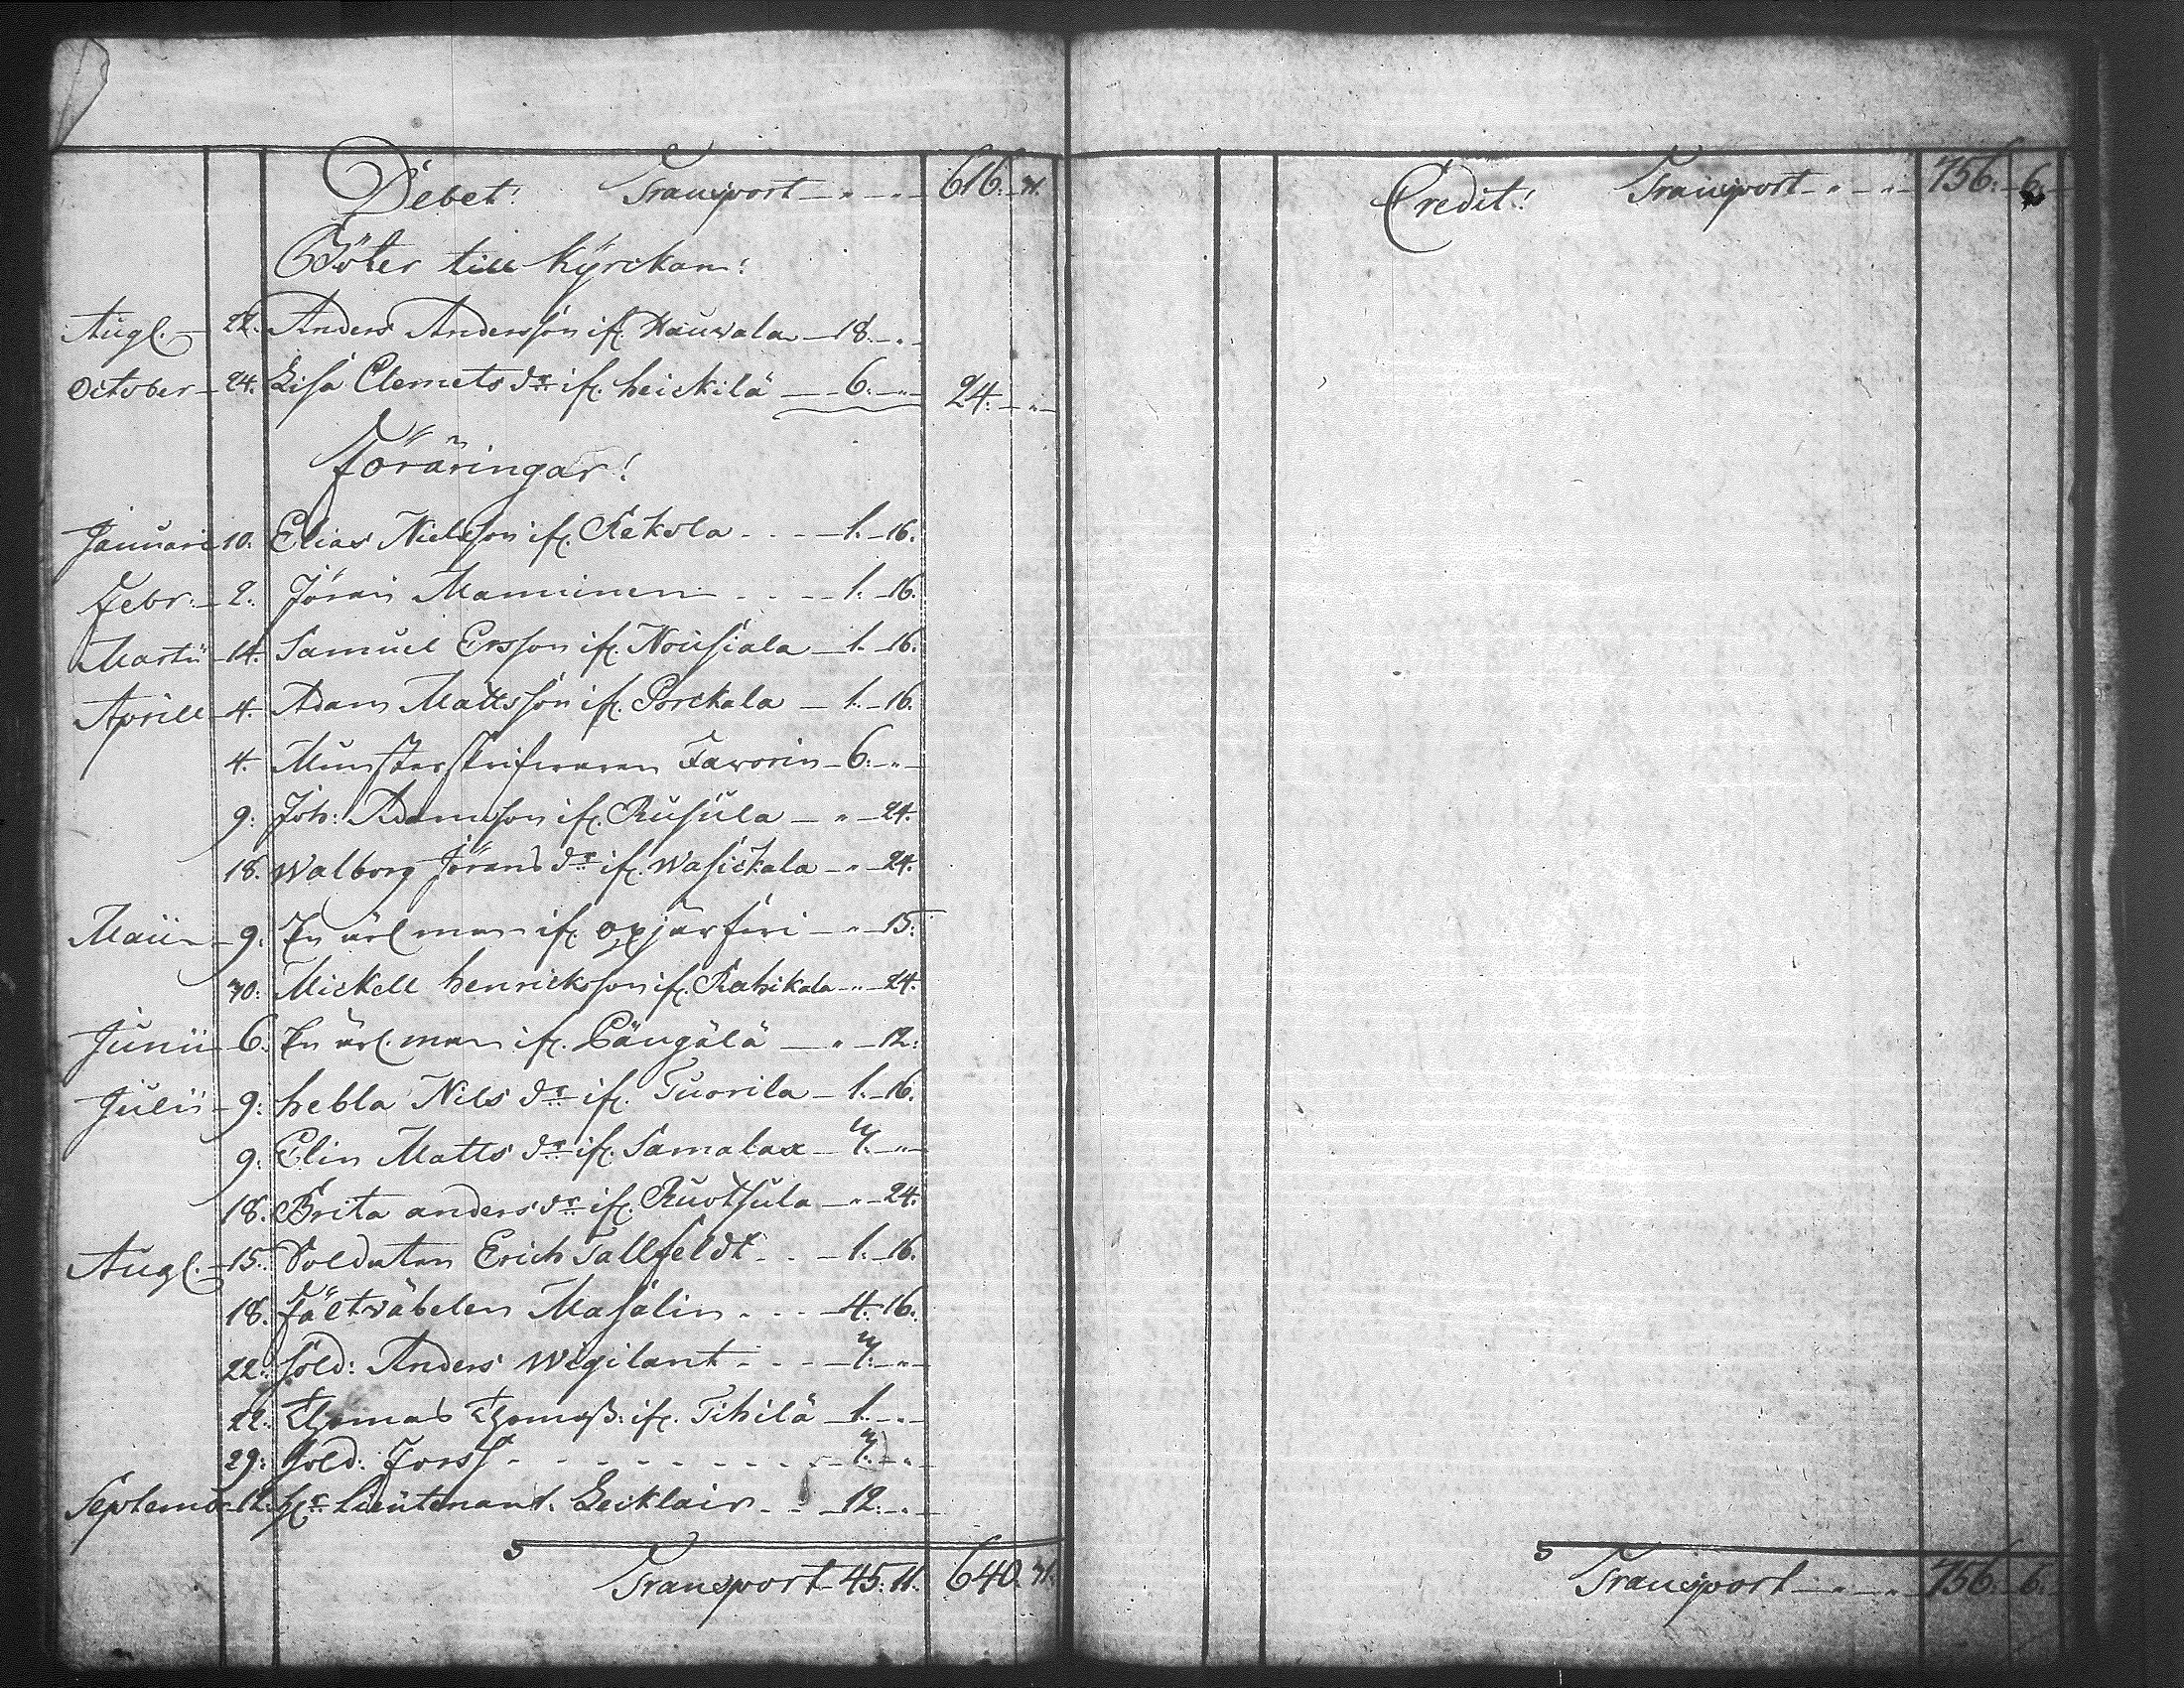 Debet! Transport 616. 31.
Böter till Kyrckan!
Augl. 22. Anders Andersson ifr. Hauvala 18.
October 24. Lisa Clemets dr. ifr. heickilä 6. 24.
Föräringar!
Januari 10. Elias Nielsson ifr. Rekola 1. 16.
Febr. 2. Jöran Manninen 1. 16.
Martii 14. Samuel Ersson ifr. Nousiala 1. 16.
Aprill 4. Adam Mattsson ifr. Porckala 1. 16.
4. Munsterskrifvaren Favorin 6.
9. Joh: Adamsson ifr. Rusula 24.
18. Walborg Jörans dr. ifr. Wasickala 24.
Maii 9. En ärl man ifr. 15.
30. Mickell henricksson ifr. Rahikala 24.
Junii 6. En ärl. man ifr. Pängälä 12.
Julii 9. hebla Nils dr. ifr. Tuorila 1. 16.
9. Elin Matts dr. ifr. Samalax 3.
18. Brita anders dr. ifr. Ruotsula 24.
Augl. 15. Soldaten Erich Tallfeldt 1. 16.
18. Fältväbelen Masalin 4. 16.
22. Sold: Anders Wigilant 3.
22. Thomas Thomass: ifr. Tihilä 1.
29. Sold: Forss 3.
Septembr 12. hr. Lieutenant. Lecklair 12.
Transport 45. 11. 640. 31.
Credit! Transport 756. 6.
Transport 756. 6.